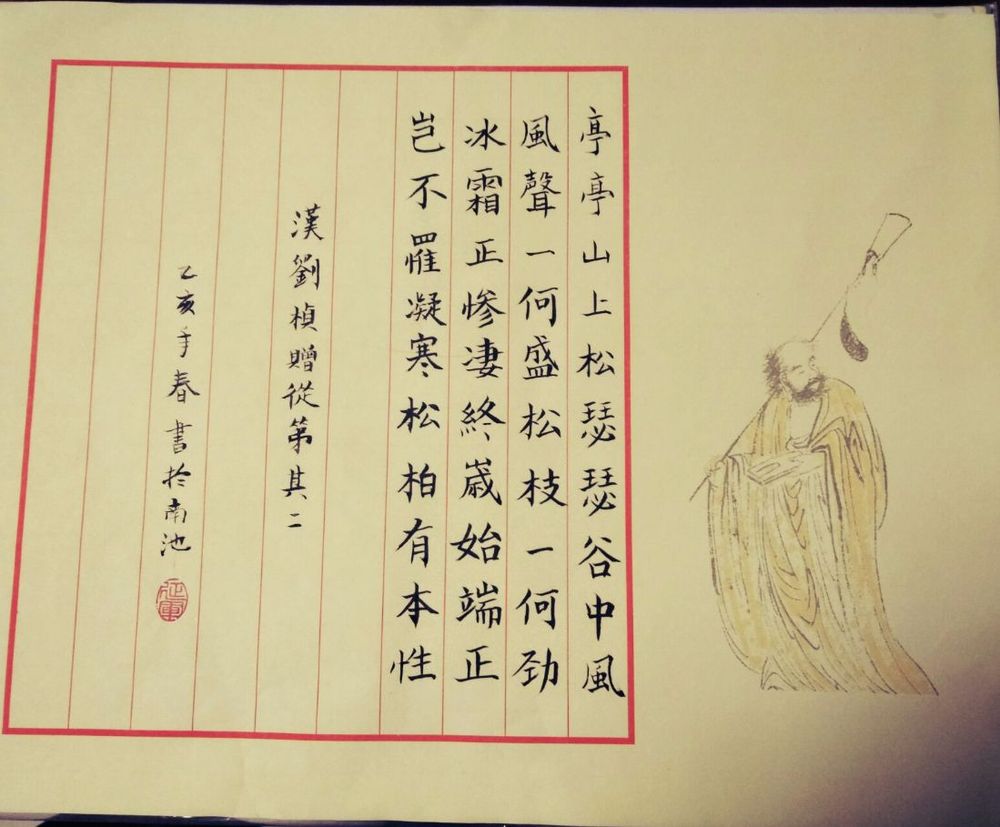 亭亭山上松瑟瑟谷中風
風聲一何盛松枝一何劲
冰霜正惨凄終歳始端正
岂不罹凝寒松柏有本性
漢劉楨贈從第其二
乙亥年春書於南池